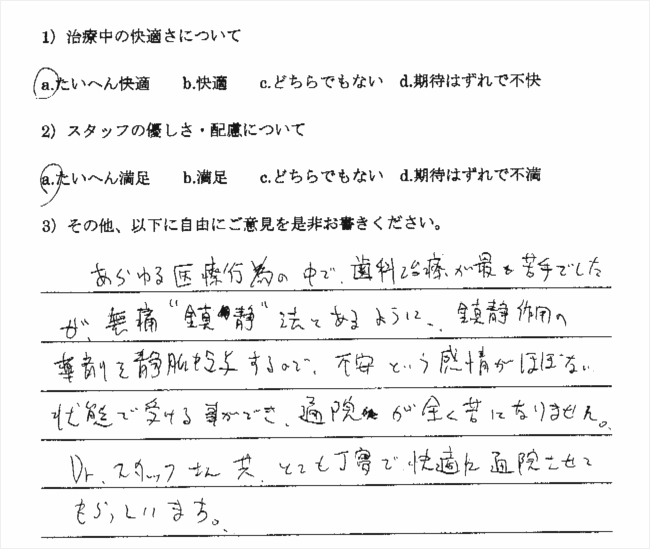 1) 治療中の快適さについて
a.たいへん快適 b.快適 c.どちらでもない d.期待はずれで不快
2) スタッフの優しさ・配慮について
a.たいへん満足 b.満足 c.どちらでもない d.期待はずれで不満
3) その他、以下に自由にご意見を是非お書きください。
あらゆる医療行為の中で、歯科治療が最も苦手でした
が、無痛“鎮静”法とあるように、鎮静作用の
薬剤を静脈投与するので、不安という感情がほぼない
状態で受ける事ができ、通院が全く苦になりません。
Dr、スタッフさん共、とても丁寧で快適に通院させて
もらっています。